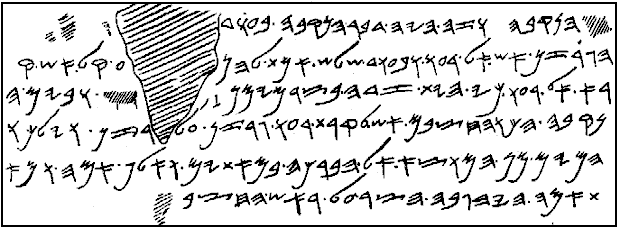 𐤄𐤍𐤒𐤁𐤄 𐤅𐤆𐤄.𐤄𐤉𐤄.𐤃𐤁𐤓.𐤄𐤍𐤒𐤁𐤄.𐤁𐤏𐤅𐤃
𐤄𐤂𐤓𐤆𐤍.𐤀𐤔.𐤀𐤋.𐤓𐤏𐤅.𐤅𐤁𐤏𐤅𐤃.𐤔𐤋𐤔.𐤀𐤌𐤕.𐤋𐤄𐤍 𐤏.𐤒𐤋.𐤀𐤔.𐤒
𐤓𐤀.𐤀𐤋.𐤓𐤏𐤅.𐤊𐤉.𐤄𐤉𐤕.𐤆𐤃𐤄.𐤁𐤑𐤓.𐤌𐤉𐤌𐤍 𐤅𐤁𐤉𐤌.𐤄
𐤍𐤒𐤁𐤄.𐤄𐤊𐤅.𐤄𐤇𐤑𐤁𐤌.𐤀𐤔.𐤋𐤒𐤓𐤕.𐤓𐤏𐤅.𐤂𐤓𐤆𐤍.𐤏𐤋.𐤓𐤆𐤍.𐤅𐤉𐤋𐤊𐤅
𐤄𐤌𐤉𐤌.𐤌𐤍.𐤄𐤌𐤅𐤑𐤀.𐤀𐤋.𐤄𐤁𐤓𐤊𐤄.𐤁𐤌𐤀𐤕𐤉𐤌.𐤅𐤀𐤋𐤐.𐤀𐤌𐤄.𐤅𐤌𐤀
𐤕.𐤀𐤌𐤄.𐤄𐤉𐤄.𐤂𐤁𐤄.𐤄𐤑𐤓.𐤏𐤋.𐤓𐤀𐤔.𐤄𐤇𐤑𐤁